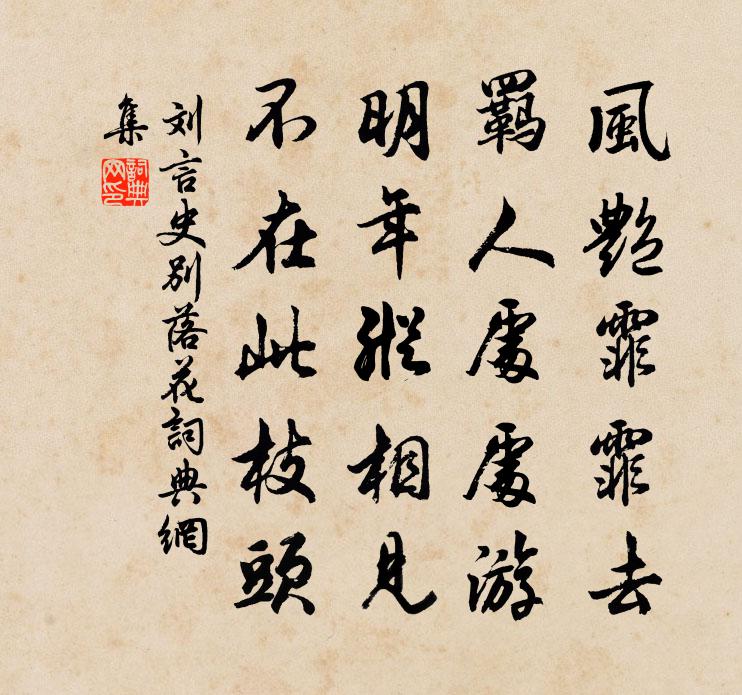 風艷霏霏去
羈人處處游
明年縱相見
不在此枝頭
刘言史别落花詞典網
集
詞典網印